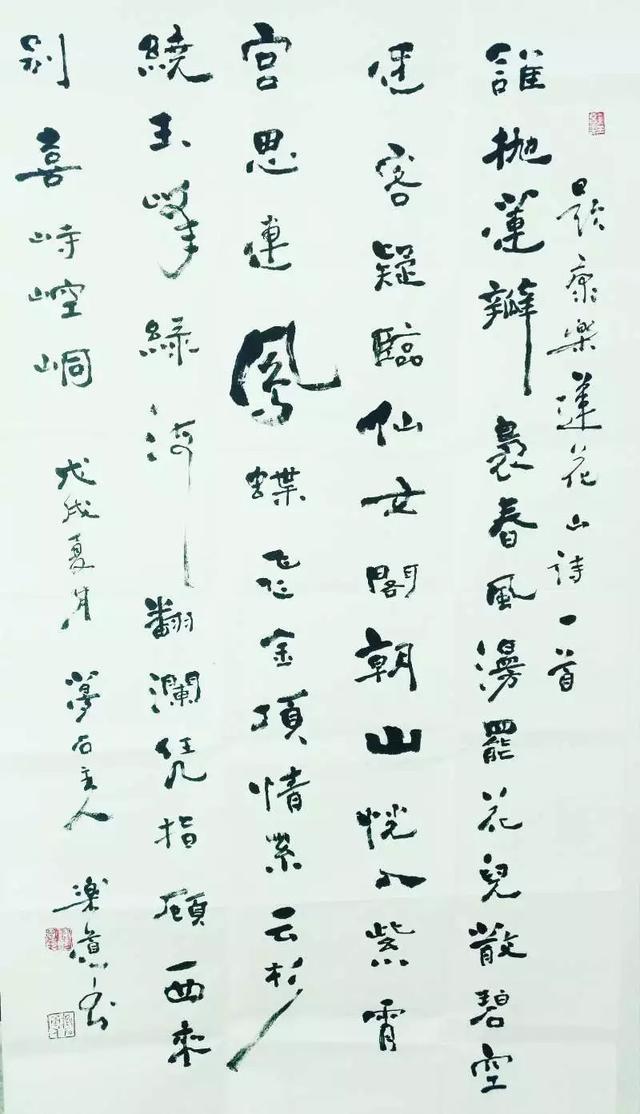 題康樂蓮花山詩一首
誰抛蓮瓣裹春風漫罷花兒散碧空
客疑臨仙女閣朝山恍入紫霄
宮思連鳳蝶飛金頂情縈云杉
繞玉峯綠翻瀾凭指顧西來
别喜峙崆峒
戊戌夏月 夢石主人 樂意书